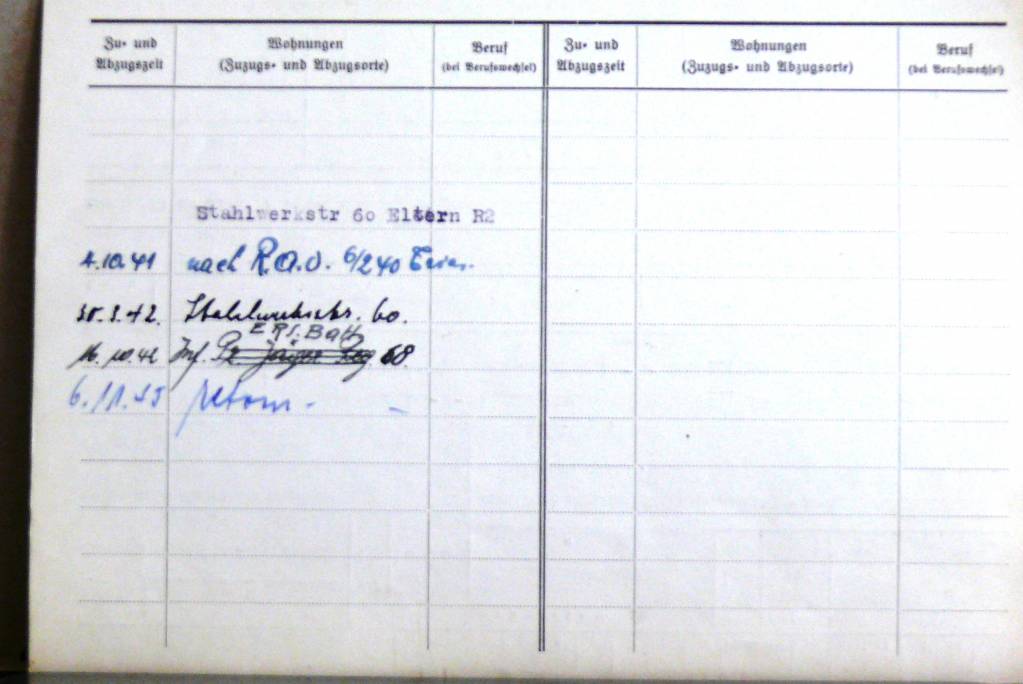 Zu- und Abzugszeit
Wohnungen
(Zuzugs- und Abzugsorte)
Beruf
(bei Berufswechsel)
Zu- und Abzugszeit
Wohnungen
(Zuzugs- und Abzugsorte)
Beruf
(bei Berufswechsel)
Stahlwerkstr 60 Eltern R2
4.10.41 nach R.A.D. 6/240
30.3.42. Stahlwerkstr. 60.
Ers. Batl
16.10.42 Inf. Pz. Jäger 68.
6.11.45